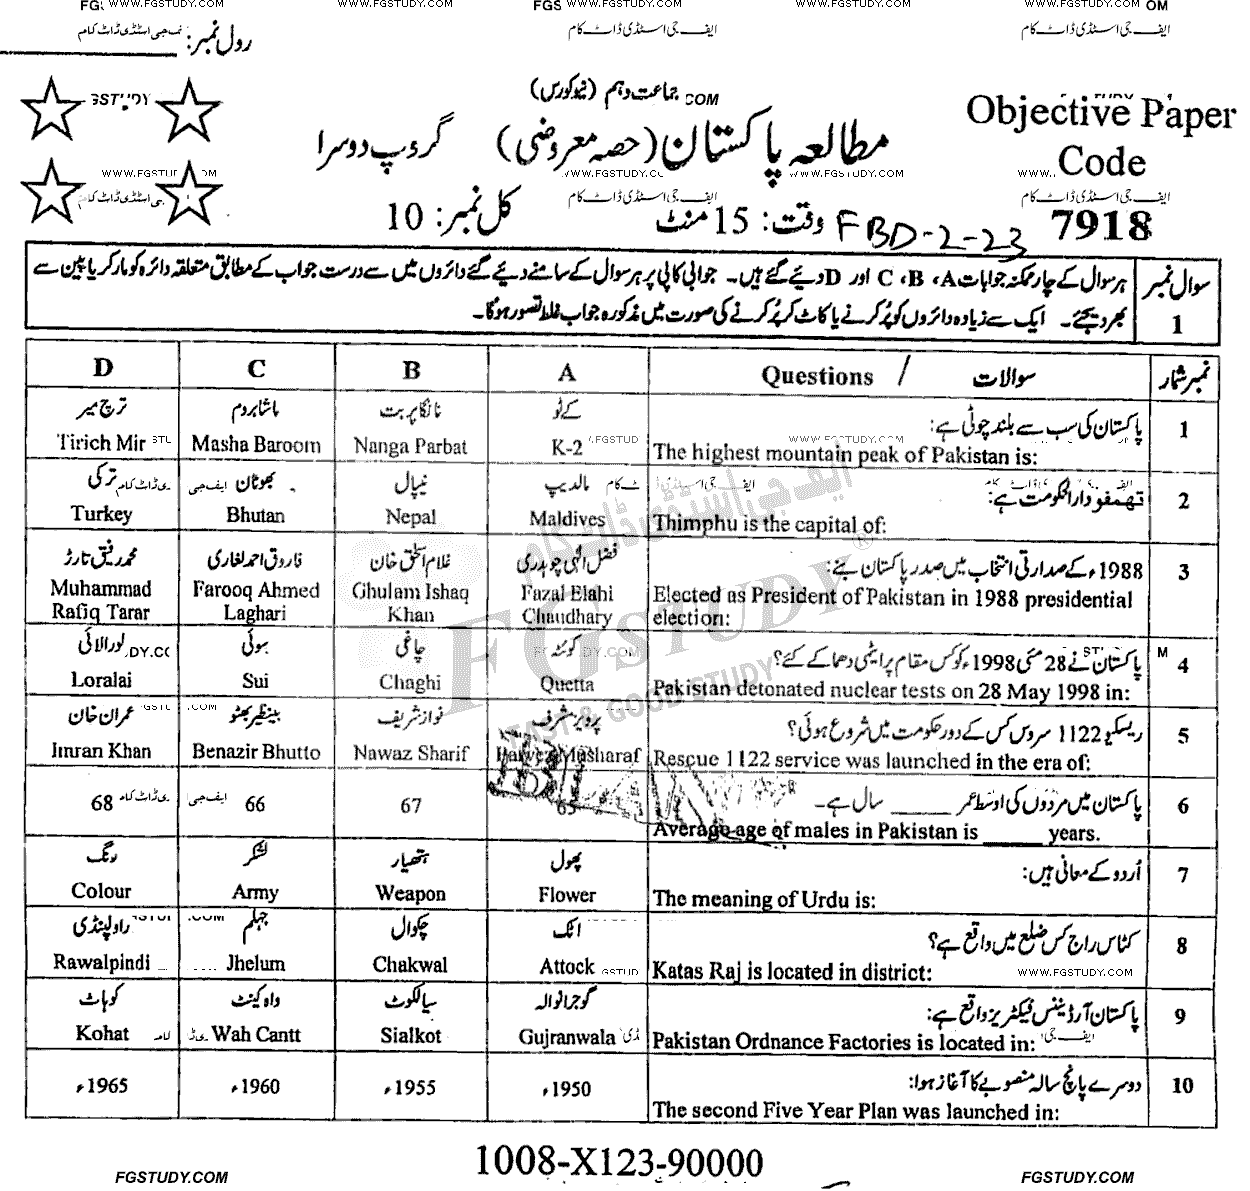 WWW.FGSTUDY.COM WWW.FGSTUDY.COM WWW.FGSTUDY.COM
ایف جی اسٹڈی ڈاٹ کام ایف جی اسٹڈی ڈاٹ کام
رول نمبر:
جماعت دہم (نیو کورس)
Objective Paper
Code
7918
مطالعہ پاکستان (حصہ معروضی) گروپ دوسرا
وقت: 15 منٹ کل نمبر: 10
FBD-2-23
سوال نمبر 1
ہر سوال کے چار ممکنہ جوابات A، B، C اور D دئیے گئے ہیں۔ جوابی کاپی پر ہر سوال کے سامنے دئیے گئے دائروں میں سے درست جواب کے مطابق متعلقہ دائرہ کو مارکر یا پین سے
بھر دیجئے۔ ایک سے زیادہ دائروں کو پُر کرنے یا کاٹ کر پُر کرنے کی صورت میں مذکورہ جواب غلط تصور ہوگا۔
نمبر شمار سوالات / Questions A B C D
1 پاکستان کی سب سے بلند چوٹی ہے: کے ٹو نانگا پربت ماشا بروم ترچ میر
The highest mountain peak of Pakistan is: K-2 Nanga Parbat Masha Baroom Tirich Mir
2 تھمفو دارالحکومت ہے: مالدیپ نیپال بھوٹان ترکی
Thimphu is the capital of: Maldives Nepal Bhutan Turkey
3 1988ء کے صدارتی انتخاب میں صدر پاکستان بنے: فضل الٰہی چوہدری غلام اسحٰق خان فاروق احمد لغاری محمد رفیق تارڑ
Elected as President of Pakistan in 1988 presidential election: Fazal Elahi Chaudhary Ghulam Ishaq Khan Farooq Ahmed Laghari Muhammad Rafiq Tarar
4 پاکستان نے 28 مئی 1998ء کو کس مقام پر ایٹمی دھماکے کئے؟ کوئٹہ چاغی سوئی لورالائی
Pakistan detonated nuclear tests on 28 May 1998 in: Quetta Chaghi Sui Loralai
5 ریسکیو 1122 سروس کس کے دور حکومت میں شروع ہوئی؟ پرویز مشرف نواز شریف بینظیر بھٹو عمران خان
Rescue 1122 service was launched in the era of: Parvez Musharaf Nawaz Sharif Benazir Bhutto Imran Khan
6 پاکستان میں مردوں کی اوسط عمر ______ سال ہے۔ 65 67 66 68
Average age of males in Pakistan is ______ years.
7 اُردو کے معانی ہیں: پھول ہتھیار لشکر رنگ
The meaning of Urdu is: Flower Weapon Army Colour
8 کٹاس راج کس ضلع میں واقع ہے؟ اٹک چکوال جہلم راولپنڈی
Katas Raj is located in district: Attock Chakwal Jhelum Rawalpindi
9 پاکستان آرڈیننس فیکٹریز واقع ہے: گوجرانوالہ سیالکوٹ واہ کینٹ کوہاٹ
Pakistan Ordnance Factories is located in: Gujranwala Sialkot Wah Cantt Kohat
10 دوسرے پانچ سالہ منصوبے کا آغاز ہوا: 1950ء 1955ء 1960ء 1965ء
The second Five Year Plan was launched in:
1008-X123-90000
FGSTUDY.COM FGSTUDY.COM